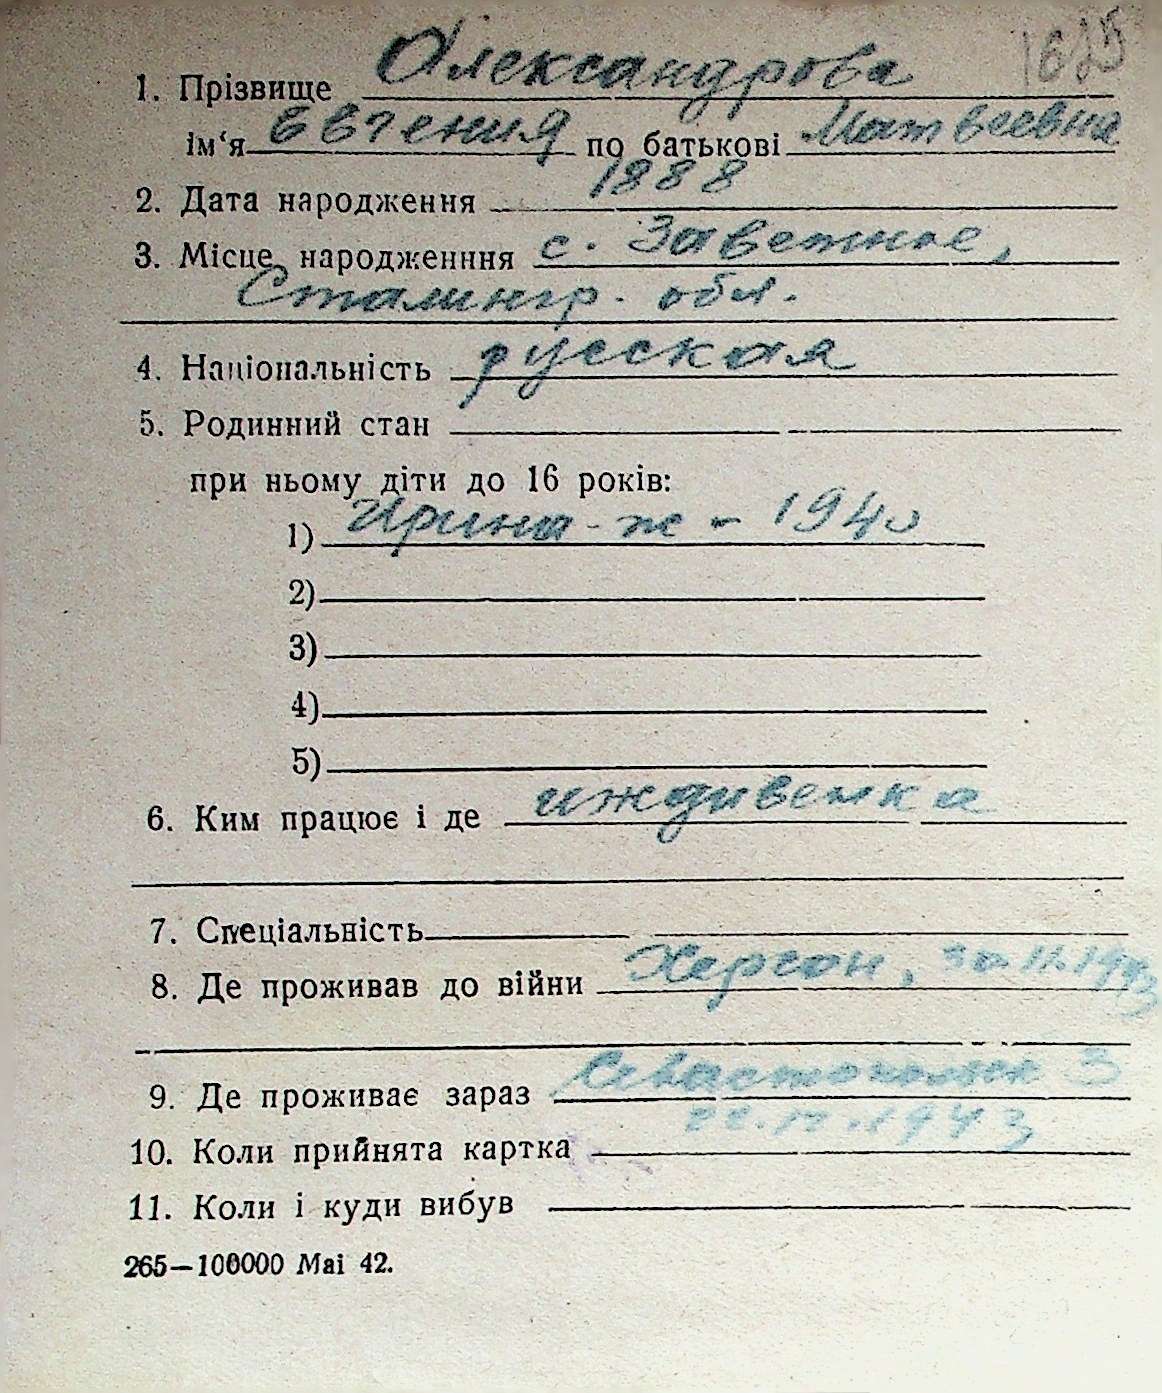 1625
1. Прізвище Олександрова
ім‘я Евгения по батькові Матвеевна
2. Дата народження 1888
3. Місце народженння с. Заветное,
Сталингр. обл.
4. Національність русская
5. Родинний стан
при ньому діти до 16 років:
1) Ирина - ж - 1940
2)
3)
4)
5)
6. Ким працює і де иждивенка
7. Спеціальність
8. Де проживав до війни Херсон, 30.11.1943
9. Де проживає зараз 3
10. Коли прийнята картка 22.12.1943
11. Коли і куди вибув
265—100000 Mai 42.